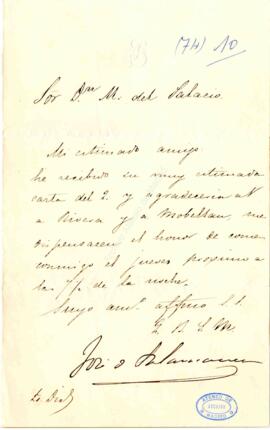 (74) 10
Sor Dn M. del Palacio.
Mi estimado amigo
he recibido su muy estimada
carta del 2. y agradeceria a V.
a Rivera y a Mobellan, me
dispensasen el honor de comer
conmigo el jueves proximo a
las 7 de la noche.
Suyo amo affmo S. S.
Q. B. S. M.
José
ATENEO DE
MADRID